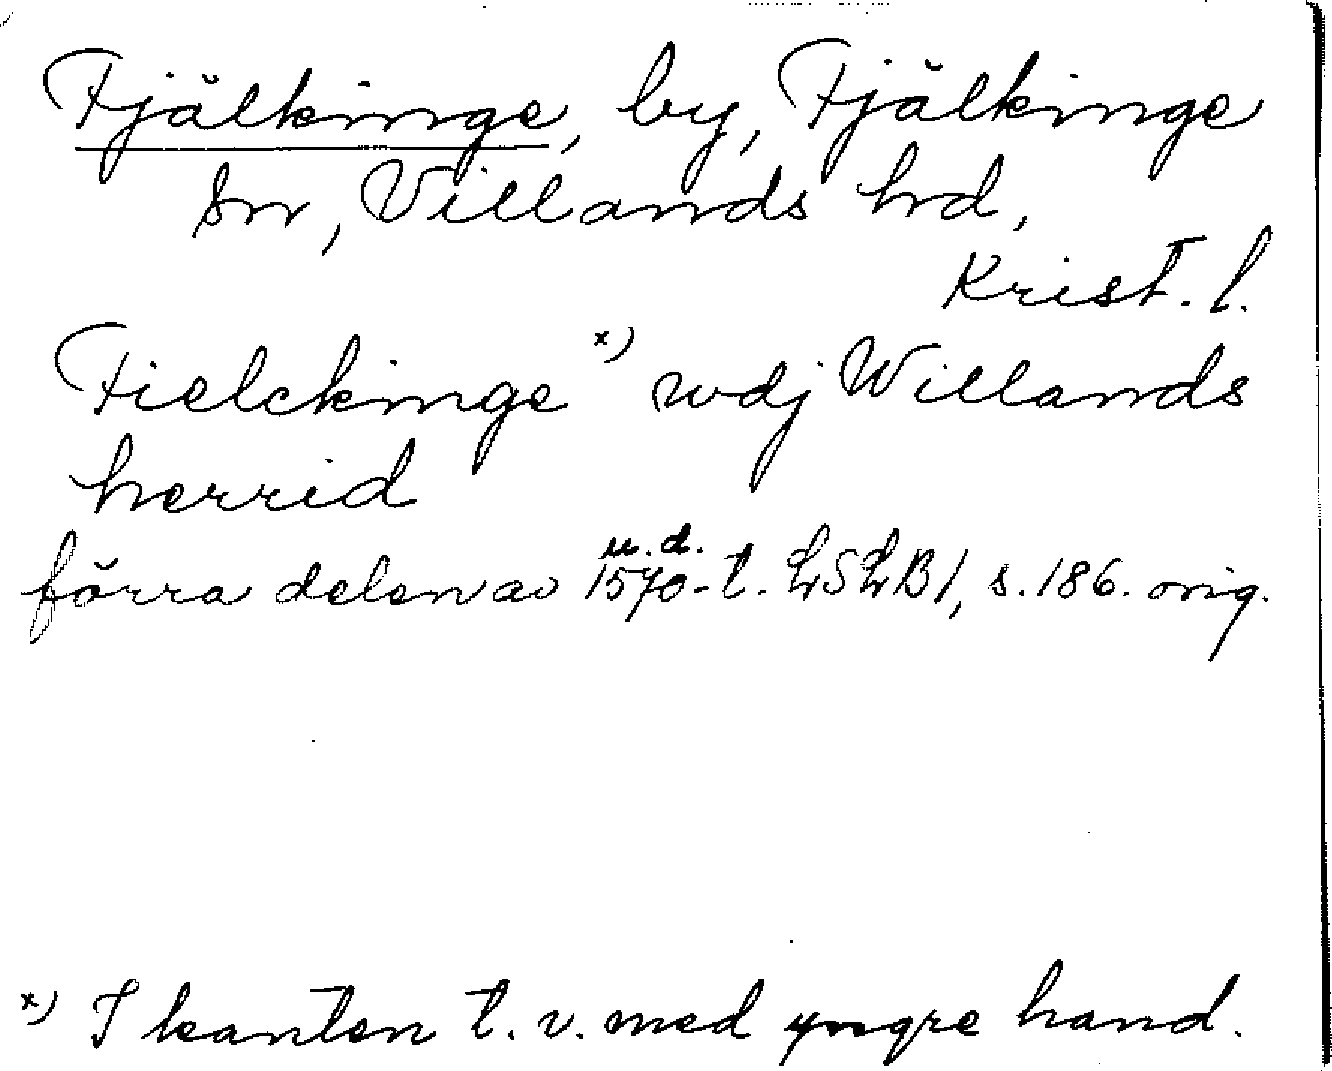 Fjälkinge, by, Fjälkinge
sn, Villands hrd,
Krist. l.
Fielckinge x) wdj Willands
herrid
u.d.
förra delen av 1570-t. LSLB1, s. 186. orig.
x) I kanten t.v. med yngre hand.